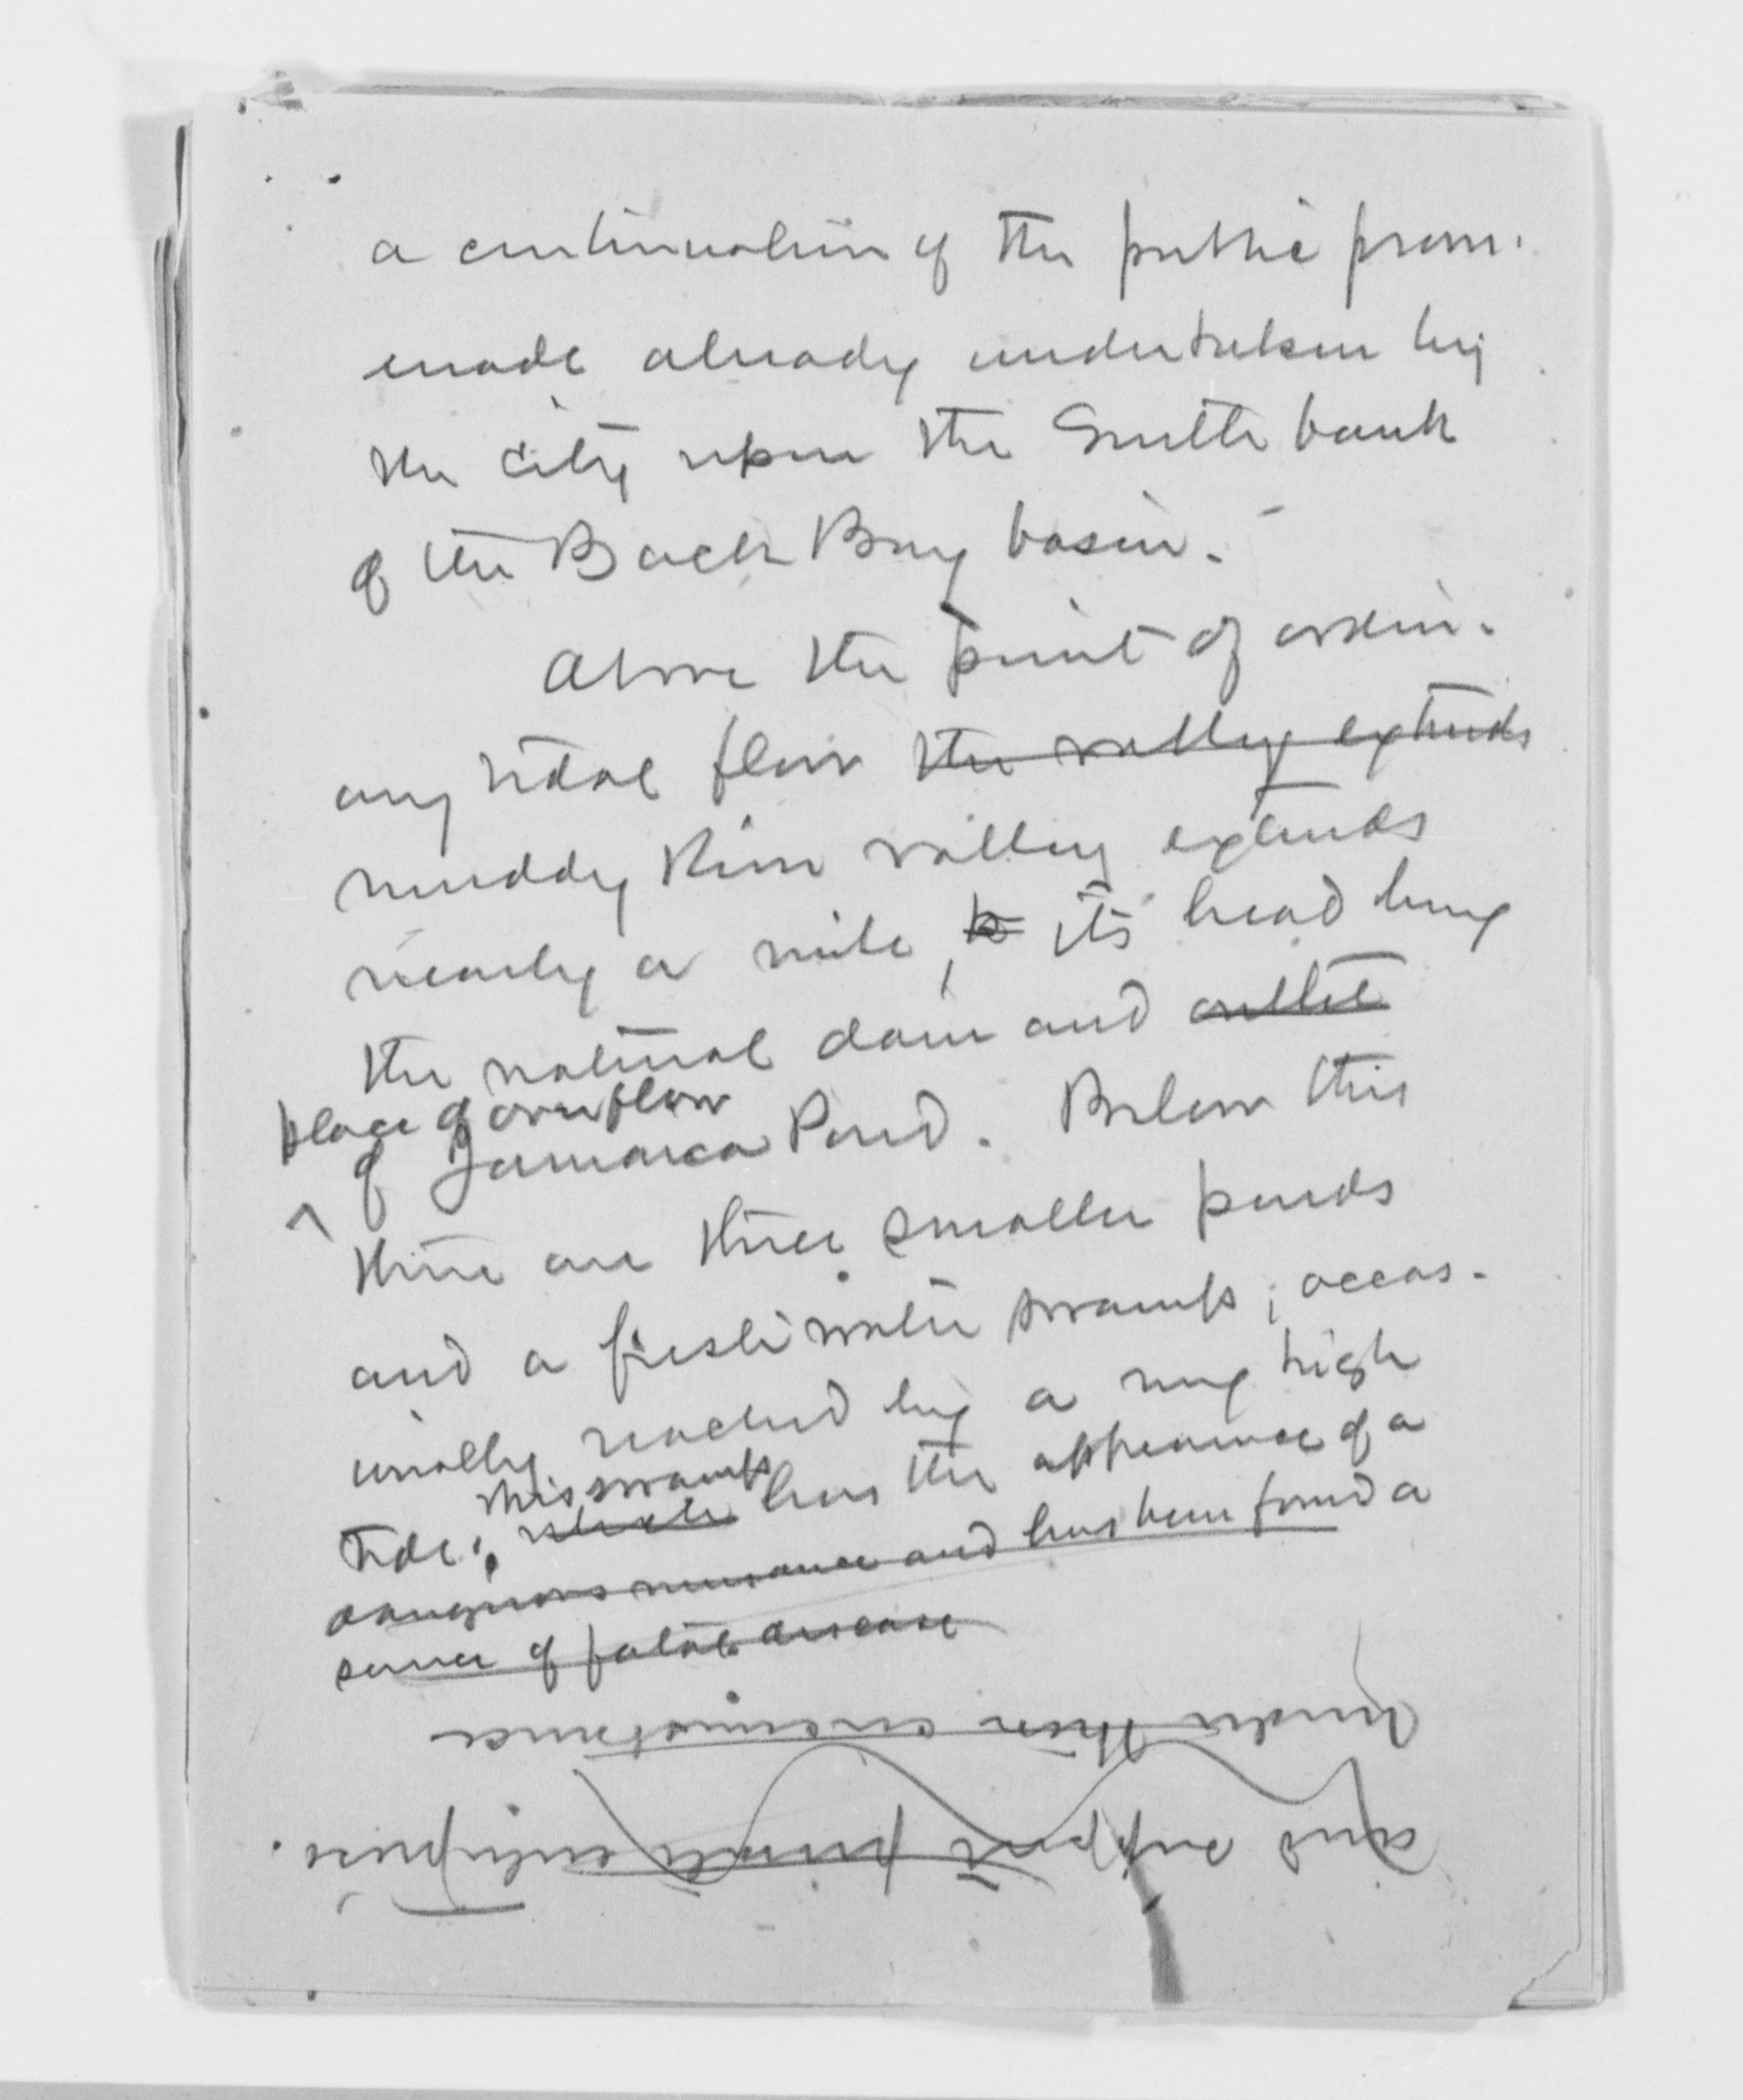 a continuation of the public prom-
enade already undertaken by
the city upon the South bank
of the Back Bay basin.
Above the point of ordin-
ary tidal flow the valley extends
muddy River valley extends
nearly a mile, to its head being
the natural dam and outlet
place of overflow
of Jamaica Pond. Below this
there are three smaller ponds
and a fresh water swamp; occas-
ionally reached by a very high
this swamp
tide; which has the appearance of a
dangerous nuisance and has been found a
source of fatal disease
and support private enterprise.
under these circumstances